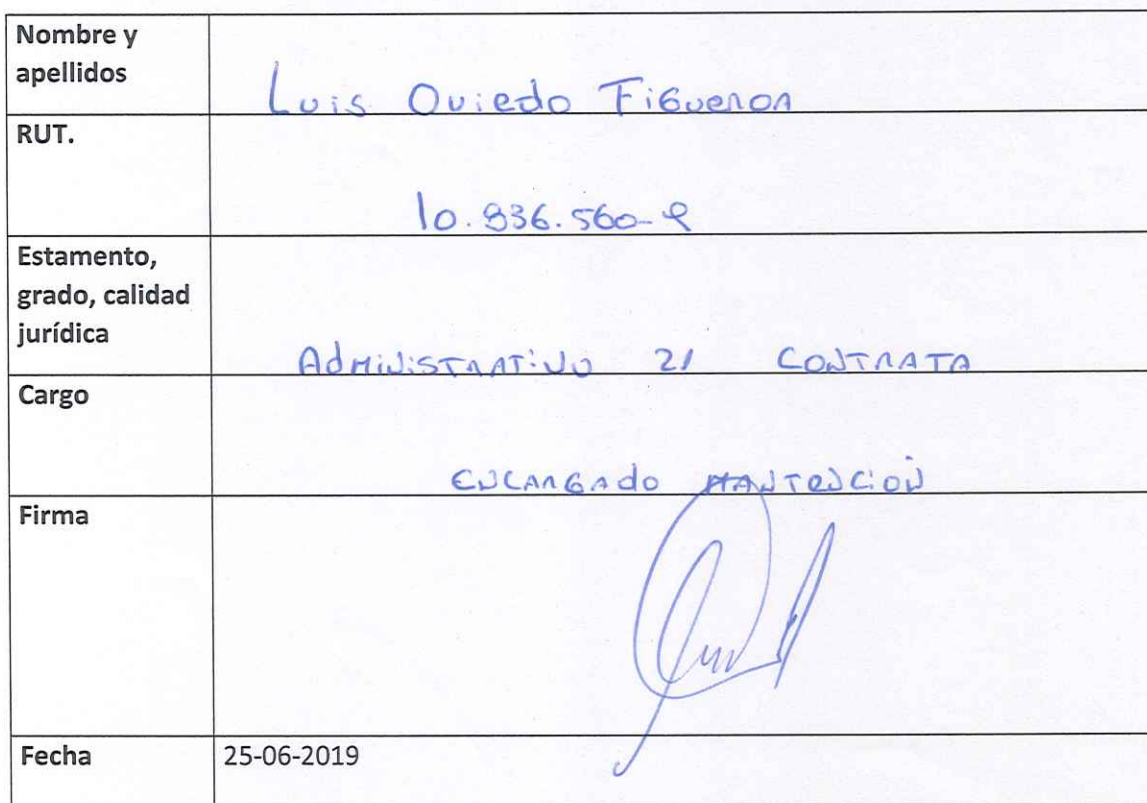 Nombre y
apellidos
Luis Oviedo Figueroa
RUT.
10.836.560-9
Estamento,
grado, calidad
jurídica
AdministratiVo 21 CONTRATA
Cargo
ENCARGAdo MANTENCIÓN
Firma
Fecha
25-06-2019